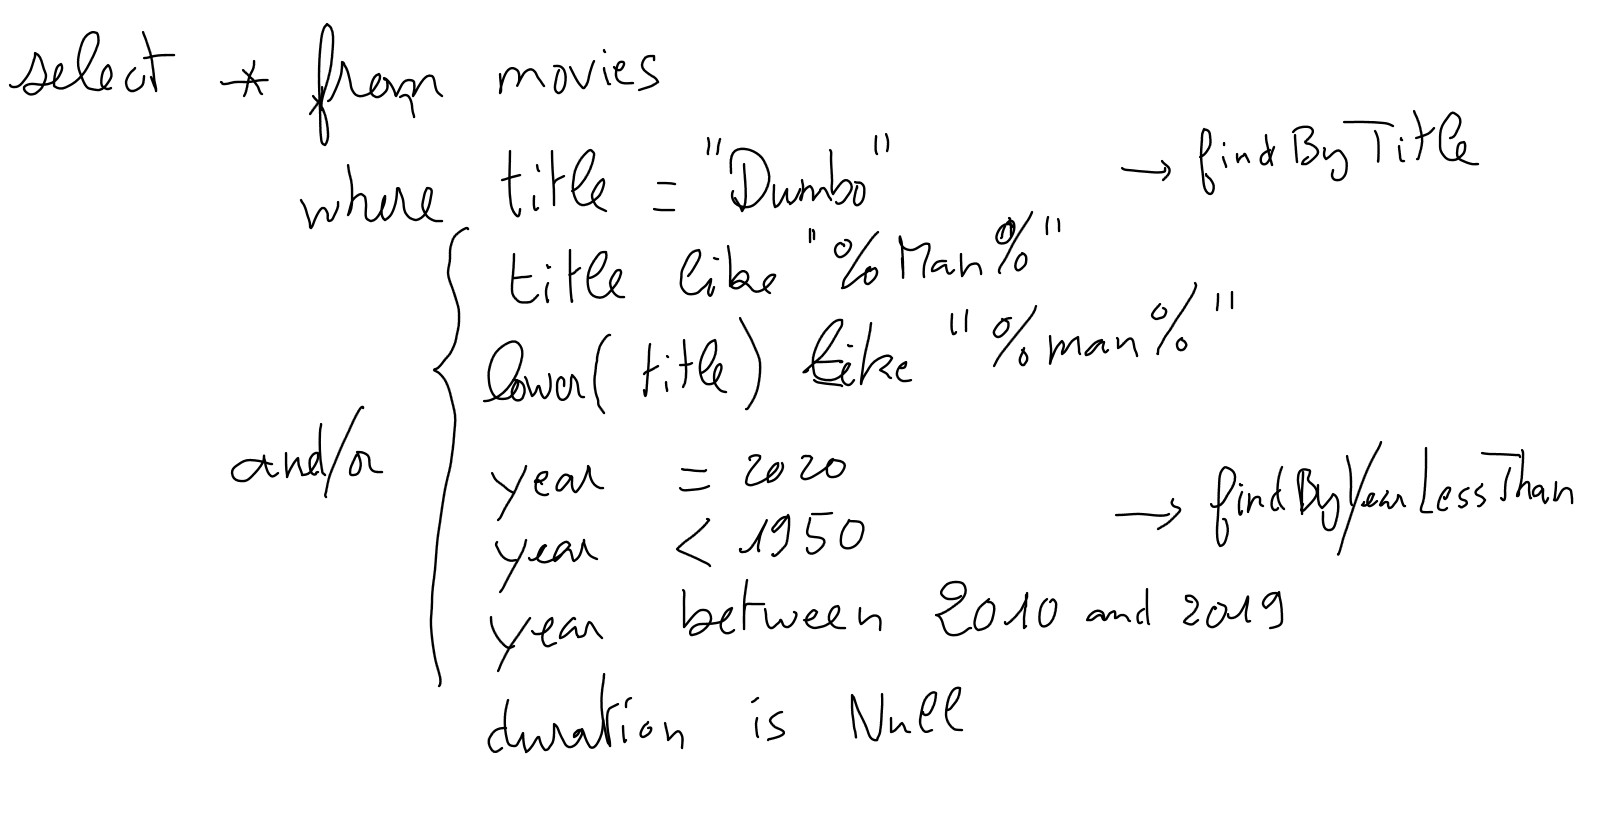 select * from movies
where title = "Dumbo" → findByTitle
title like "%Man%"
lower(title) like "%man%"
and/or
year = 2020
year < 1950 → findByYearLessThan
year between 2010 and 2019
duration is Null